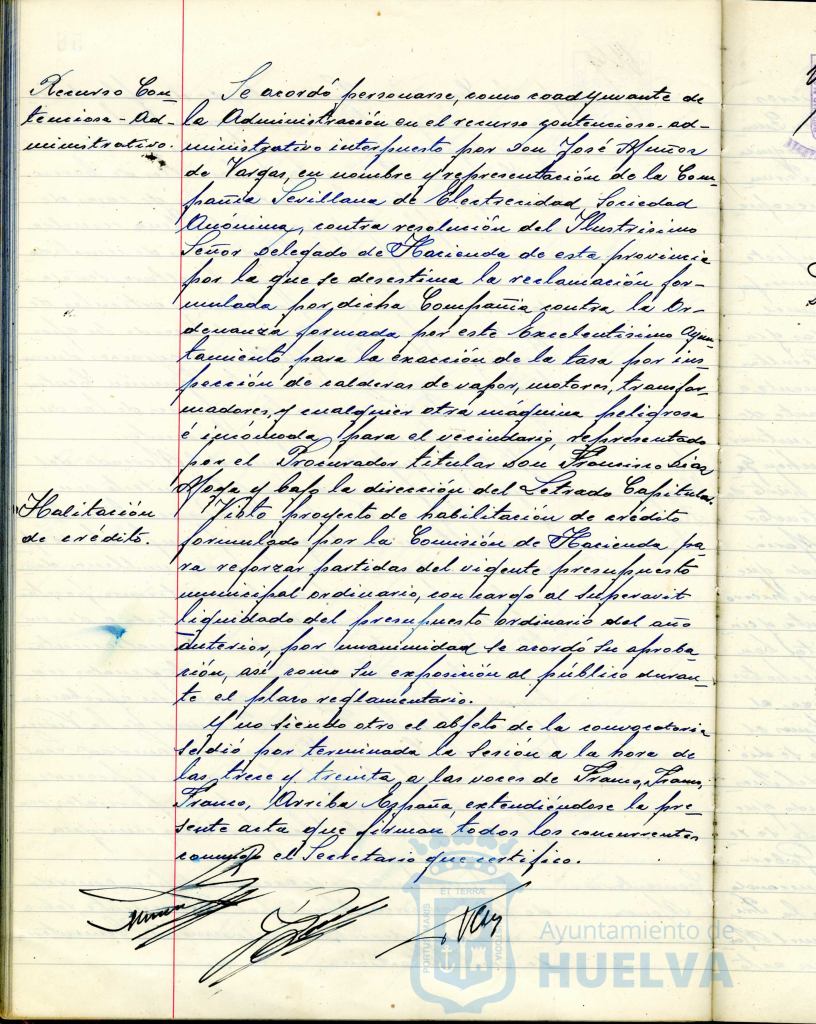 Recurso Con-
tencioso-Ad-
ministrativo.
Se acordó personarse, como coadyuvante de
la Administración en el recurso contencioso-ad-
ministrativo interpuesto por Don José Muñoz
de Vargas, en nombre y representación de la Com-
pañia Sevillana de Electricidad, Sociedad
Anónima, contra resolución del Ilustrisimo
Señor Delegado de Hacienda de esta provincia
por la que se desestima la reclamación for-
mulada por dicha Compañia contra la Or-
denanza formada por este Excelentisimo Ayun-
tamiento para la exacción de la tasa por ins-
pección de calderas de vapor, motores, transfor-
madores, y cualquier otra máquina peligrosa
é incómoda para el vecindario, representado
por el Procurador titular Don Francisco Diaz
Moya y bajo la dirección del Letrado Capitular.
Halitación
de crédito.
Visto proyecto de habilitación de crédito
formulado por la Comisión de Hacienda pa-
ra reforzar partidas del vigente presupuesto
municipal ordinario, con cargo al superavit
liquidado del presupuesto ordinario del año
anterior, por unanimidad se acordó su aproba-
ción, asi como su exposición al público duran-
te el plazo reglamentario.
Y no siendo otro el objeto de la convocatoria
se dió por terminada la sesión a la hora de
las trece y treinta, a las voces de Franco, Franco,
Franco, ¡Arriba España, extendiéndose la pre-
sente acta que firman todos los concurrentes
conmigo el Secretario que certifico.
ET TERRÆ
PORTUS MARIS
CUSTODIA
Ayuntamiento de
HUELVA